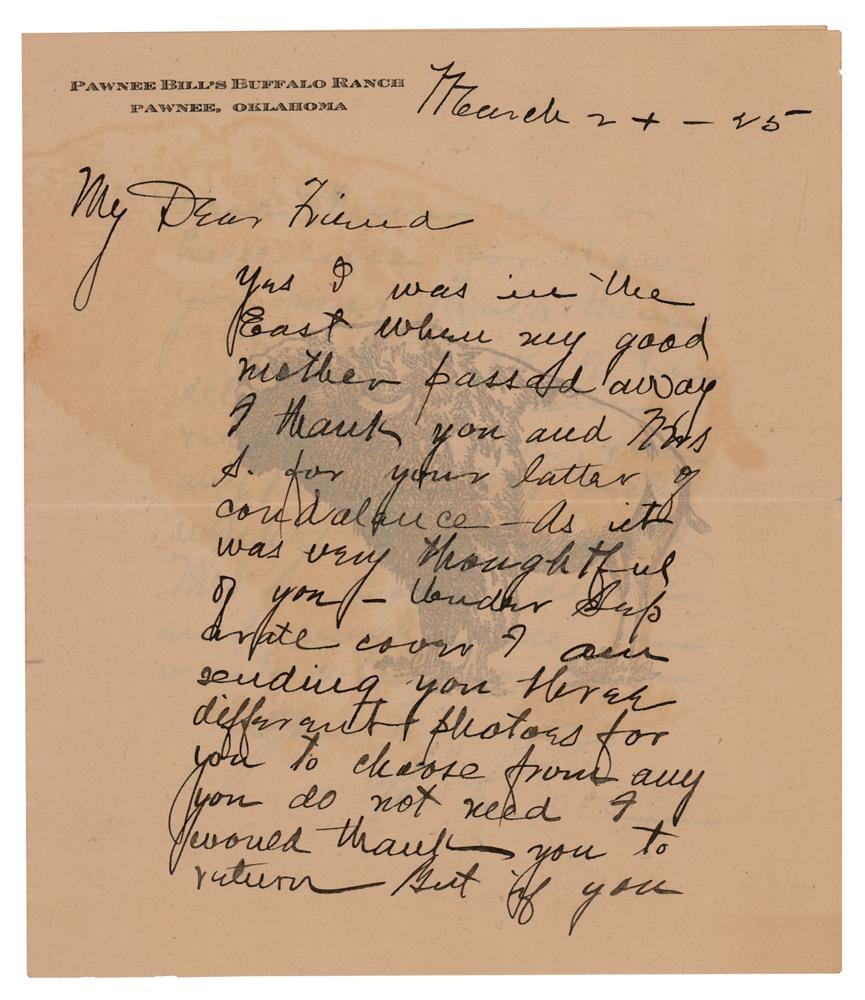 PAWNEE BILL'S BUFFALO RANCH
PAWNEE, OKLAHOMA
March 2 + - 25
My Dear Friend
Yes I was in the
East when my good
mother passed away
I thank you and Mrs
S. for your latter of
condalance - As it
was very thoughtful
of you - Under Sep
arate cover I am
sending you three
different photoes for
you to choose from any
you do not need I
would thank you to
return But if you